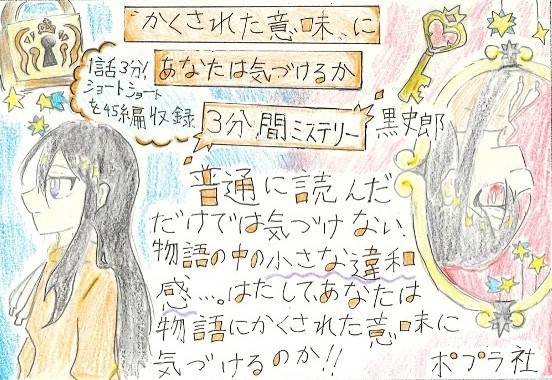 "かくされた意味"に
あなたは気づけるか
1話3分!
ショートショート
を45編収録
3分間ミステリー
黒史郎
普通に読んだ
だけでは気づけない、
物語の中の小さな違和
感…。はたしてあなたは
物語にかくされた意味に
気づけるのか!!
ポプラ社